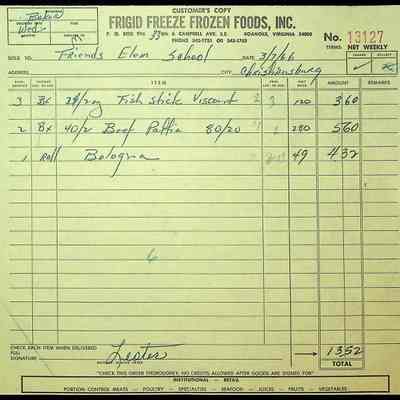 CUSTOMER'S COPY
FRIGID FREEZE FROZEN FOODS, INC.
P. O. BOX 6 CAMPBELL AVE. S.E. ROANOKE, VIRGINIA
No. 13127
TERMS: NET WEEKLY
Wed
SOLD TO Friends Elem School DATE 3/7/66
ADDRESS CITY Christiansburg
ITEM AMOUNT REMARKS
3 Bx Fish Stick Viscount 3 120 3 60
2 Bx 40/2 Beef Pattie 80/20 280 5 60
1 Roll Bologna 49 4 32
6
CHECK EACH ITEM WHEN DELIVERED
FOR SIGNATURE Lester 13 52
TOTAL
"CHECK THIS ORDER THOROUGHLY, NO CREDITS ALLOWED AFTER GOODS ARE SIGNED FOR"
INSTITUTIONAL - RETAIL
PORTION CONTROL MEATS - POULTRY - SPECIALTIES - SEAFOOD - JUICES - FRUITS - VEGETABLES